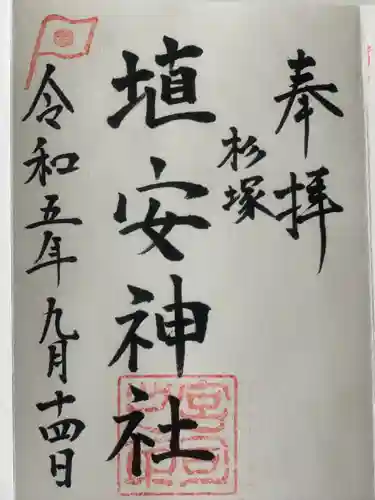 奉拝
杉塚
埴安神社
令和五年九月十四日
宮司之印